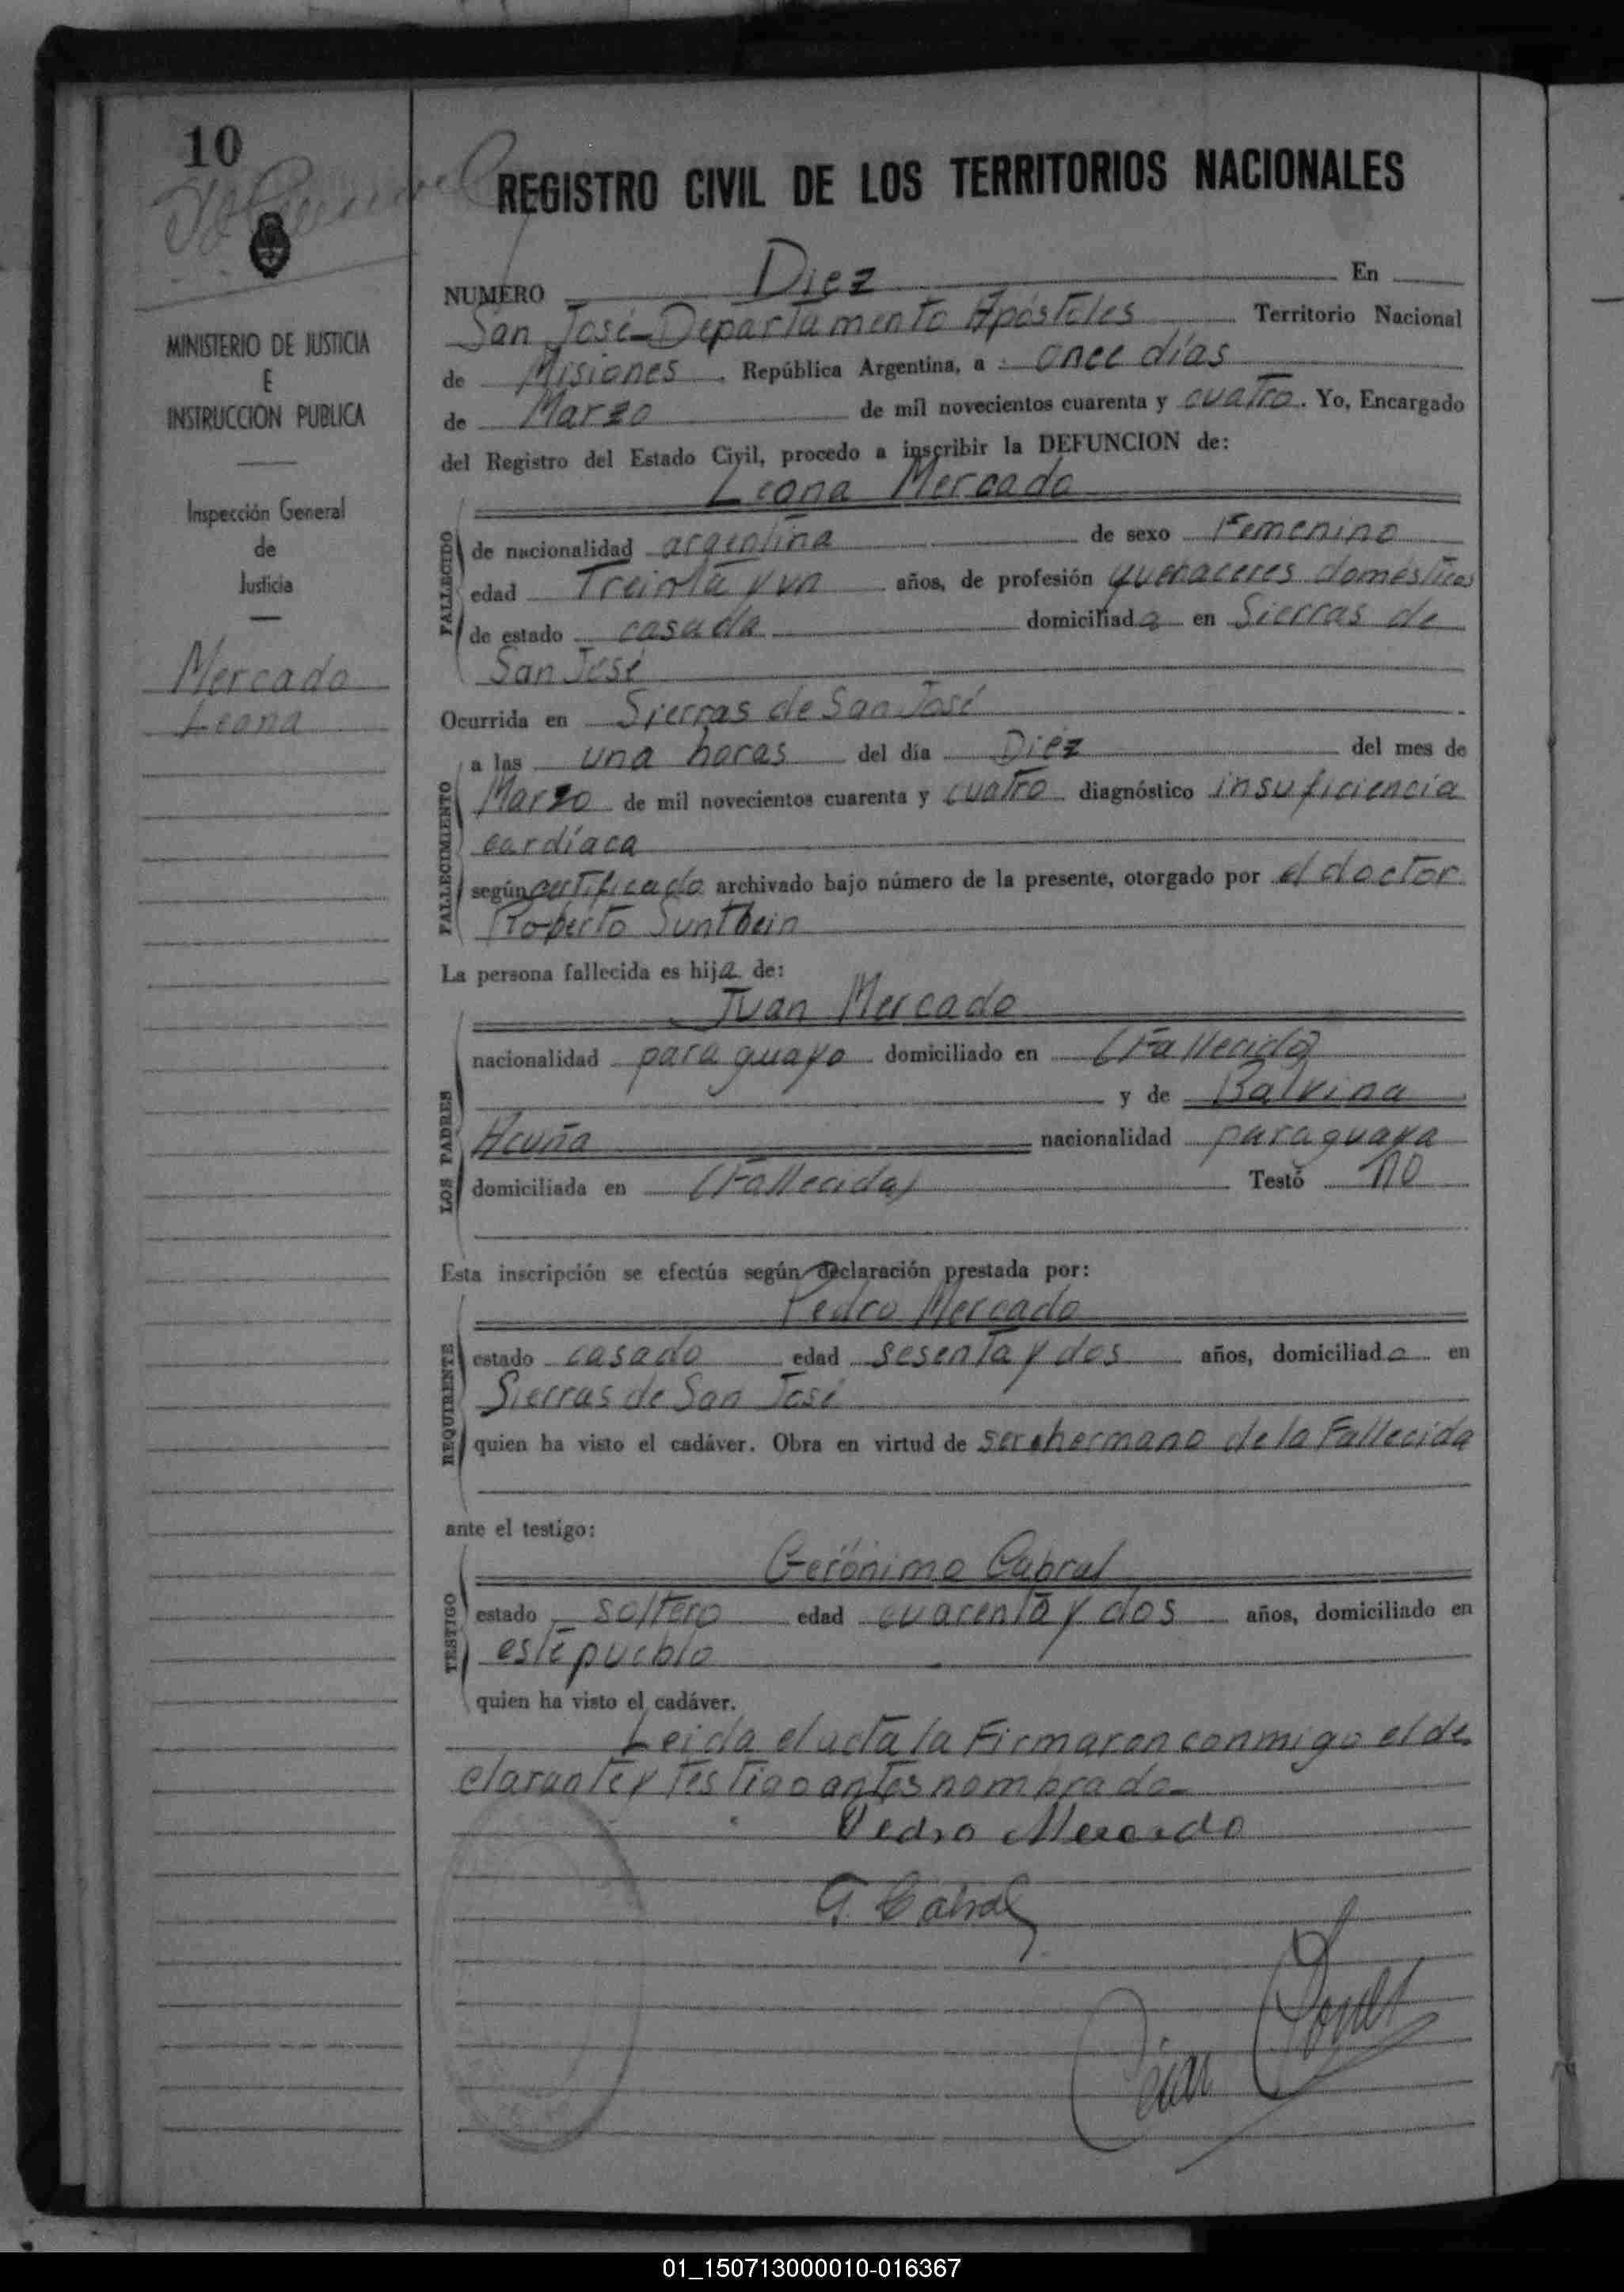 10
MINISTERIO DE JUSTICIA
E
INSTRUCCION PUBLICA
Inspección General
de
Justicia
Mercado
Leona
REGISTRO CIVIL DE LOS TERRITORIOS NACIONALES
NUMERO Diez En
San José-Departamento Apóstoles Territorio Nacional
de Misiones, República Argentina, a once días
de Marzo de mil novecientos cuarenta y cuatro. Yo, Encargado
del Registro del Estado Civil, procedo a inscribir la DEFUNCION de:
Leona Mercado
FALLECIDO
de nacionalidad argentina de sexo Femenino
edad Treinta y un años, de profesión quehaceres domésticos
de estado casada domiciliada en Sierras de
San José
Ocurrida en Sierras de San José
FALLECIMIENTO
a las una horas del día Diez del mes de
Marzo de mil novecientos cuarenta y cuatro diagnóstico insuficiencia
cardíaca
según certificado archivado bajo número de la presente, otorgado por el doctor
Roberto Sunthein
La persona fallecida es hija de:
Juan Mercado
LOS PADRES
nacionalidad paraguayo domiciliado en (Fallecido)
y de Balvina
Acuña nacionalidad paraguaya
domiciliada en (Fallecida) Testó no
Esta inscripción se efectúa según declaración prestada por:
Pedro Mercado
REQUIRENTE
estado casado edad sesenta y dos años, domiciliado en
Sierras de San José
quien ha visto el cadáver. Obra en virtud de ser hermano de la Fallecida
ante el testigo:
Gerónimo Cabral
TESTIGO
estado soltero edad cuarenta y dos años, domiciliado en
este pueblo
quien ha visto el cadáver.
Leida el acta la Firmaron conmigo el de
clarante y testigo antes nombrado-
Pedro Mercado
G. Cabral
01_150713000010-016367